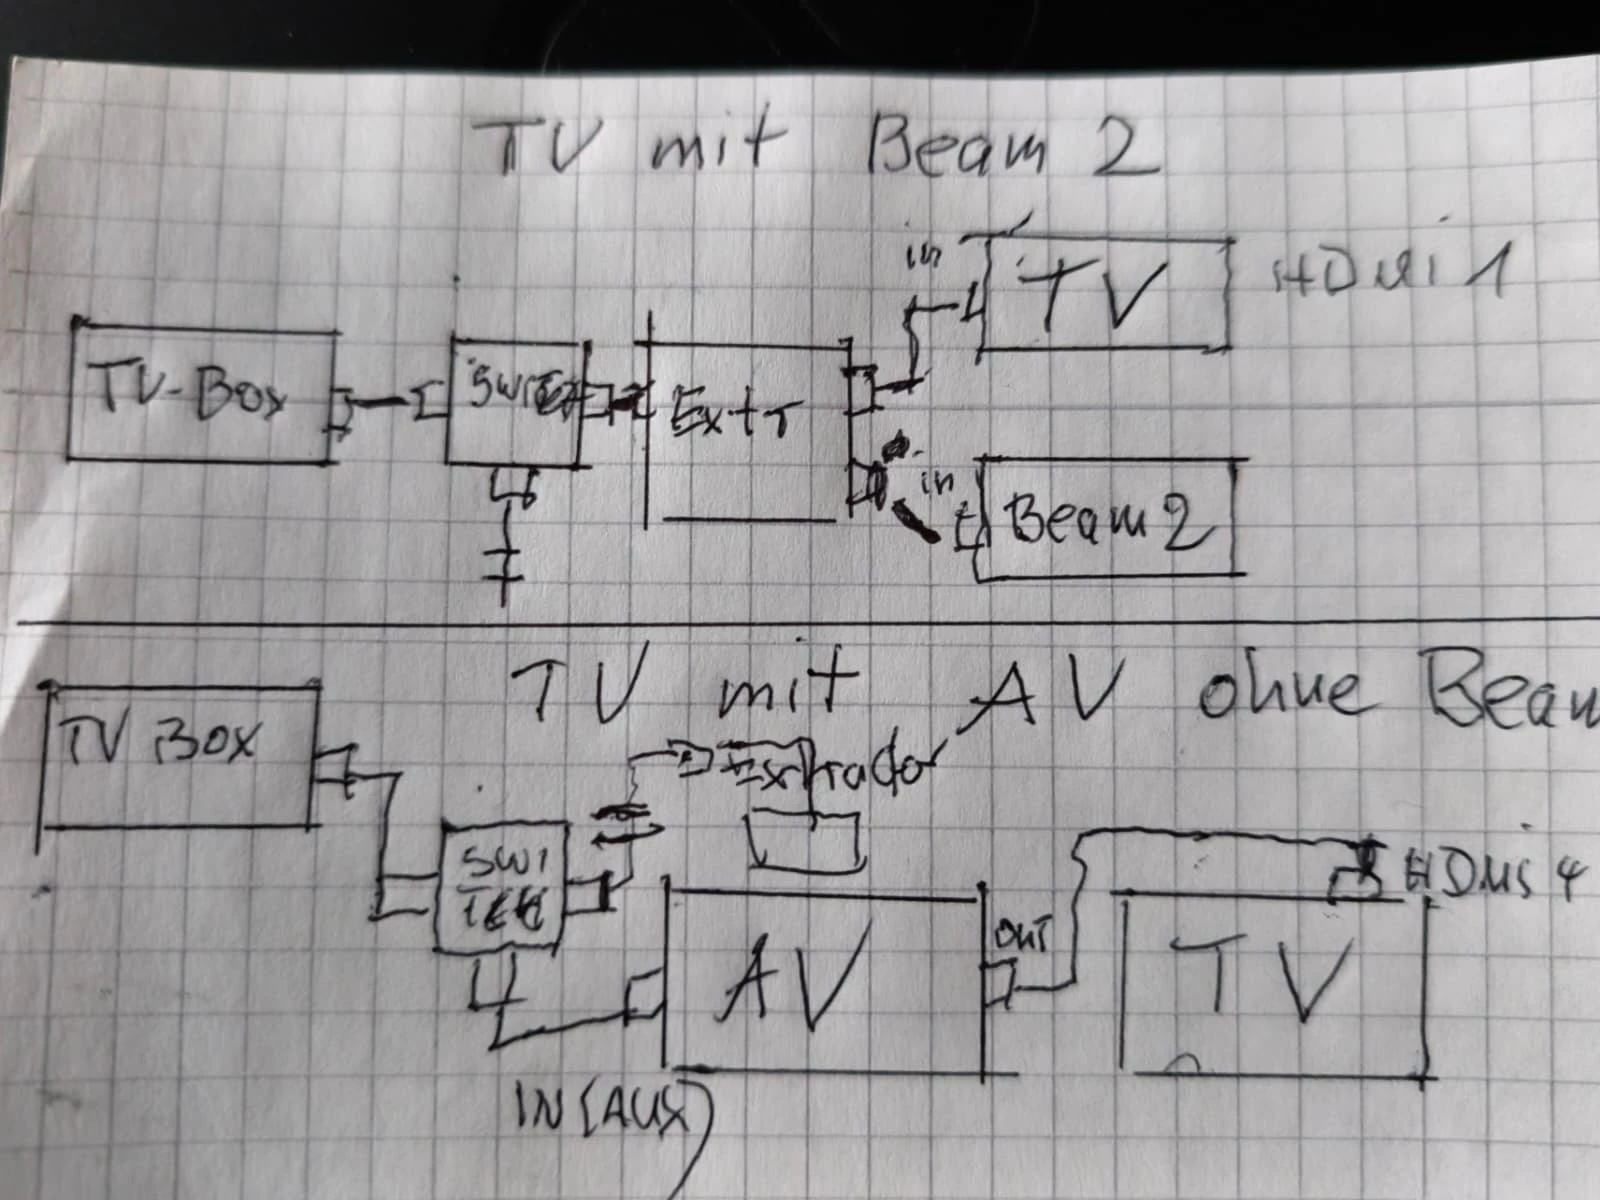 TV mit Beam 2
in
TV
HDMi 1
TV-Box
Extr
in
Beam 2
TV mit AV ohne Beam
TV Box
Extrador
SWI
HDMi 4
OUT
AV
TV
IN (AUX)